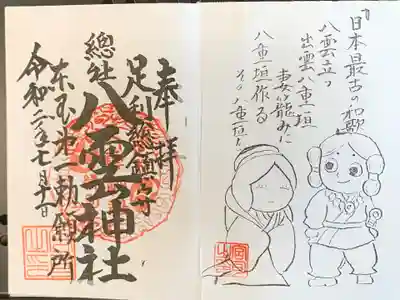 『日本最古の和歌』
八雲立つ
出雲八重垣
妻籠みに
八重垣作る
その八重垣を
奉拝
足利総鎮守
總社 八雲神社
東国第一勅願所
令和二年七月十一日